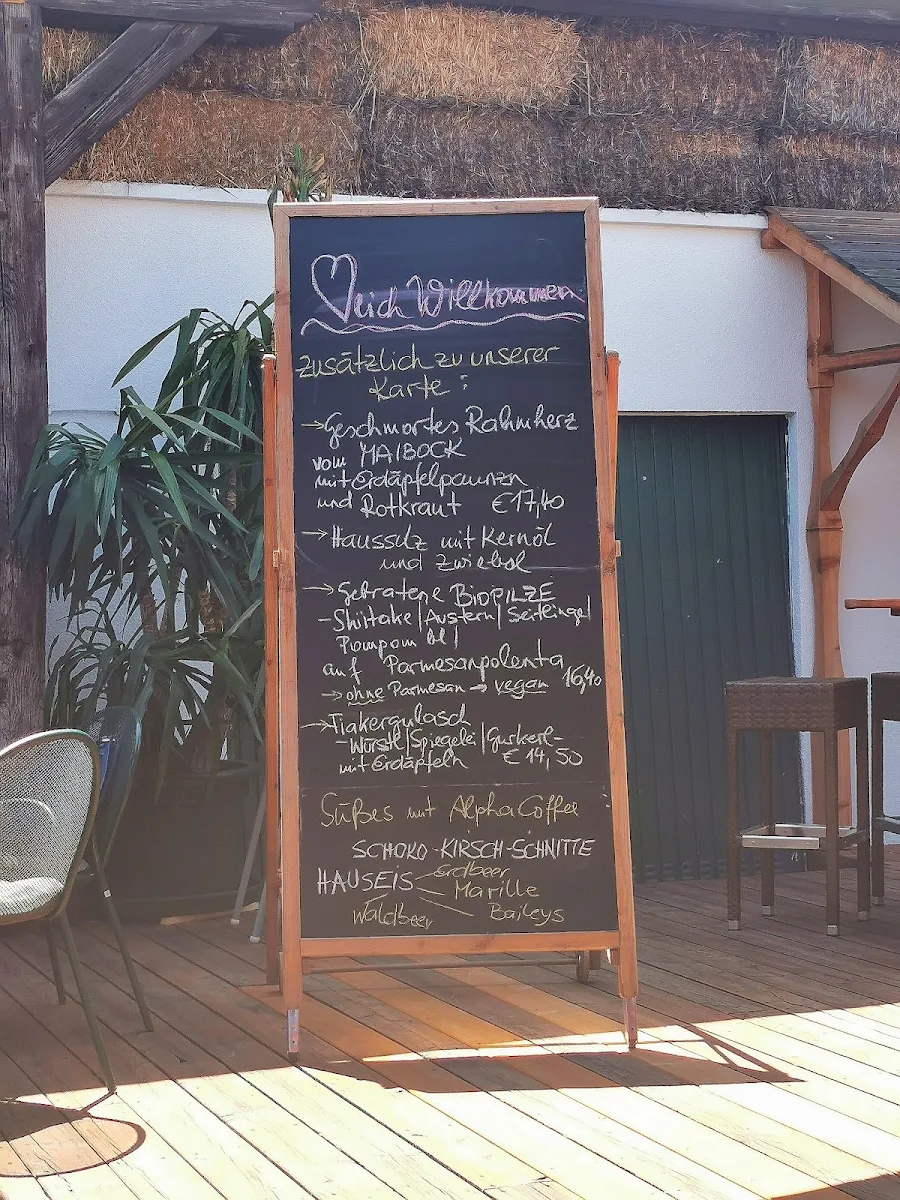 lich Willkommen
Zusätzlich zu unserer
Karte:
→ Geschmortes Rahmherz
vom MAIBOCK
mit Erdäpfelpaunzn
und Rotkraut €17,40
→ Haussulz mit Kernöl
und Zwiebel
→ Gebratene BIOPILZE
- Shiitake | Austern | Seitlinge |
Pompom bl |
auf Parmesanpolenta 16,40
→ ohne Parmesan → vegan
→ Fiakergulasch
- Würstl | Spiegelei | Gurkerl -
mit Erdäpfeln € 14,50
Süßes mit Alpha Coffee
SCHOKO-KIRSCH-SCHNITTE
HAUSEIS Erdbeer
Marille
Waldbeer Baileys